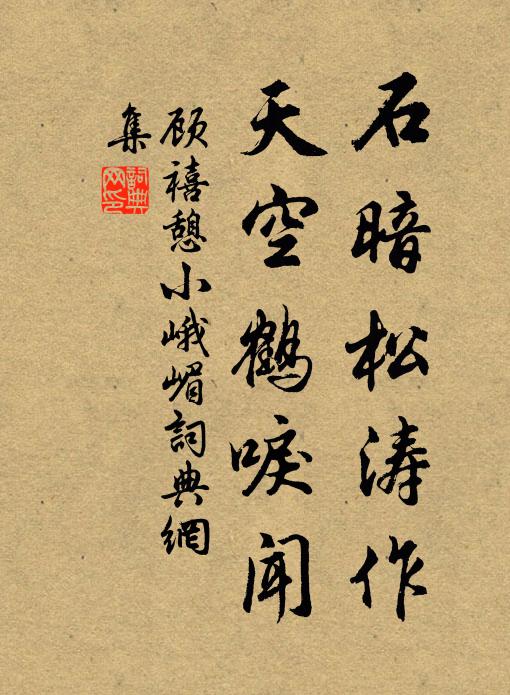 石暗松涛作
天空鹤唳闻
顾禧憩小峨嵋詞典網
集
詞典网印